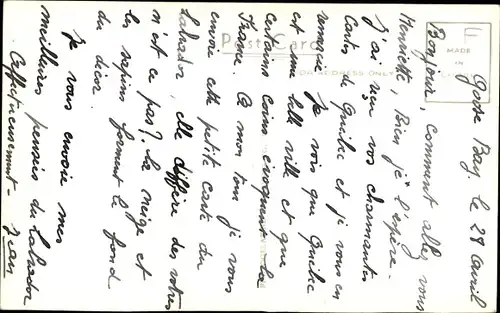 Goose Bay. le 28 avril
Bonjour, comment allez vous
Henriette, Bien je l'espère.
J'ai reçu vos charmantes
Cartes de Québec et je vous en
remercie. Je vois que Québec
est une belle ville et que
certains coins évoquent la
France. A mon tour je vous
envoie cette petite carte du
Labrador, elle diffère des votres
n'est ce pas? La neige et
les sapins forment le fond
du décor.
Je vous envoie mes
meilleures pensées du Labrador
Affectueusement - Jean
Post Card
FOR ADDRESS ONLY
MADE
IN